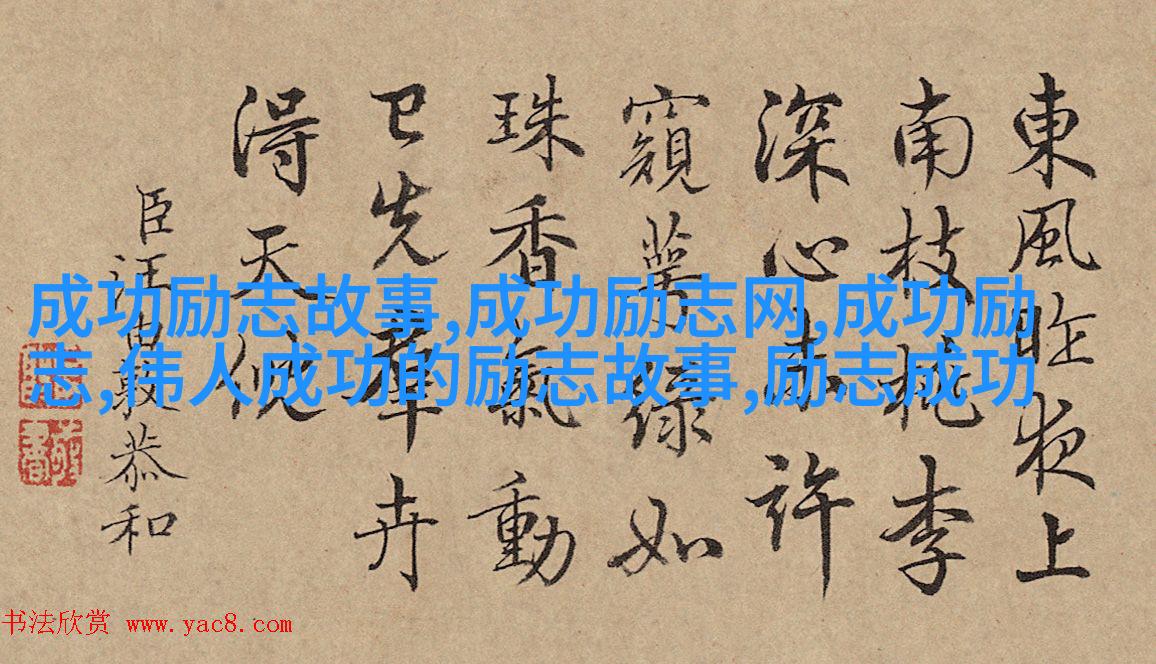 東風昨夜上
南枝桃李
深心未許
窺萼緑如
珠香氣動
已先羣卉
得天倪
臣汪由敦恭和
成功励志故事,成功励志网,成功励
志,伟人成功的励志故事,励志成功
书法欣赏 www.yac8.com